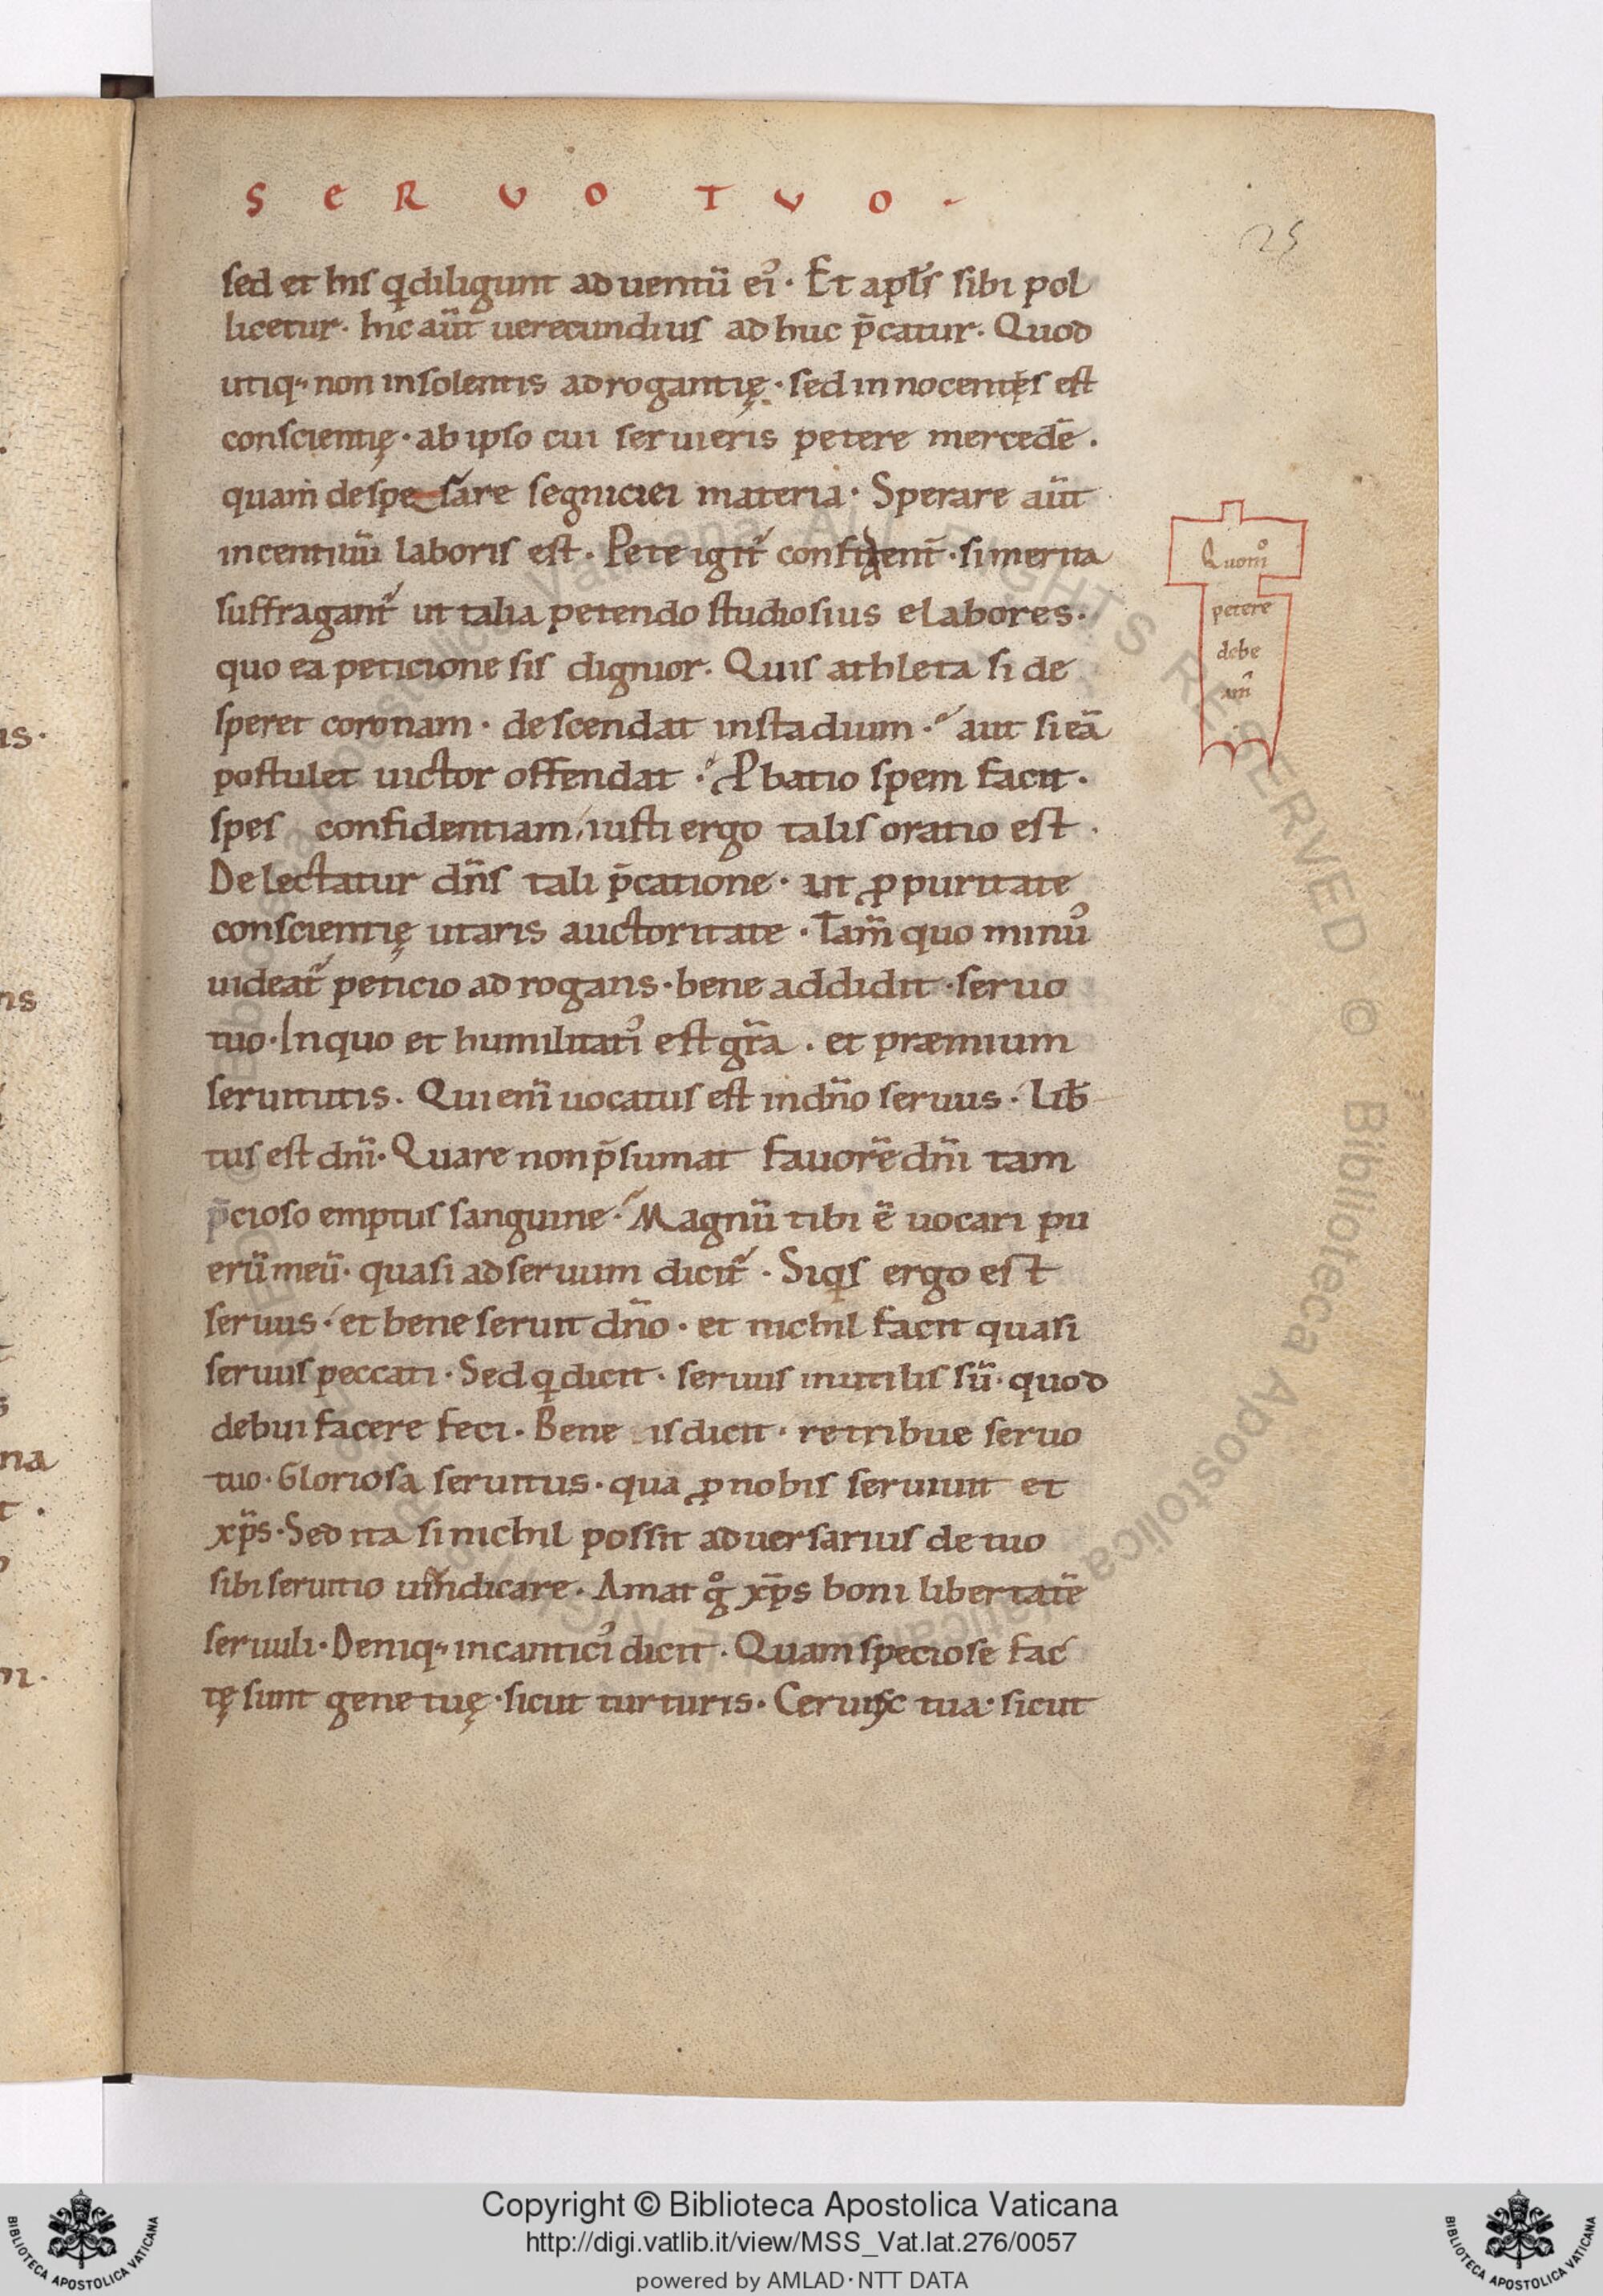 S E R V O T V O .
25
sed et his q̇ diligunt aduentū eiꝰ · Et apl̄s sibi pol
licetur · hic aūt uerecundius ad huc p̄catur · Quod
utiq; non insolentis adrogantię · sed innocentęs est
conscientię · ab ipso cui seruieris petere mercedē ·
quam despe rare segniciei materia · Sperare aūt
incentiuū laboris est · Pete igit᷑ confident̄ · si merita
suffragant᷑ ut talia petendo studiosius elabores ·
quo ea peticione sis dignior · Quis athleta si de
speret coronam · descendat in stadium · aut si eā
postulet uictor offendat · Ꝓbatio spem facit ·
spes confidentiam, iusti ergo talis oratio est ·
Delectatur dn̄s tali p̄catione · ut ꝓ puritate
conscientię utaris auctoritate · Tam̄ quo minꝰ
uideat᷑ peticio adrogans · bene addidit · seruo
tuo · In quo et humilitatiꝰ est gr̄a · et præmium
seruitutis · Qui eni̅ uocatus est in dn̄o seruus · lib̄
tus est dn̄i · Quare non p̄sumat fauorē dn̄i tam
p̄cioso emptus sanguine · Magnū tibi ē uocari pu
erū meū · quasi ad seruum dicit᷑ · Siqͥs ergo est
seruus · et bene seruit dn̄o · et nichil facit quasi
seruus peccati · Sed q̇ dicit · seruus inutilis sū · quod
debui facere feci · Bene is dicit · retribue seruo
tuo · Gloriosa seruitus · qua ꝓ nobis seruiuit et
xp̄s · Sed ita si nichil possit aduersarius de tuo
sibi seruitio uindicare · Amat g̊ xp̄s boni libertatē
seruuli · Deniq; in canticiꝰ dicit · Quam speciose fac
tę sunt gene tuę · sicut turturis · Ceruix tua · sicut
Quom̊
petere
debe
am᷒
Copyright © Biblioteca Apostolica Vaticana
http://digi.vatlib.it/view/MSS_Vat.lat.276/0057
powered by AMLAD·NTT DATA
BIBLIOTECA APOSTOLICA VATICANA
BIBLIOTECA APOSTOLICA VATICANA